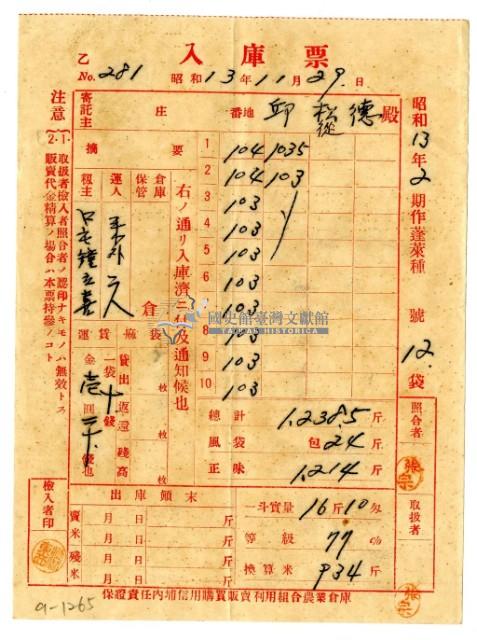 入庫票
乙 No. 281 昭和13年11月29日
昭和13年2期作蓬萊種 號 12袋
寄託主 庄 番地 邱 松 德 殿
摘要
1 104 103.5
2 104 103
3 103
4 103
5 103
6 103
103
8 103
9 103
10 103
右ノ通リ入庫濟ニ付及通知候也
倉庫保管
倉
運人
籾主
運賃 麻袋
一袋 十錢
金 壱 圓 二十 錢也
貸出 枚
返還 枚
殘高 枚
總計 1,238.5 斤
風袋 包 24 斤
正味 1,214 斤
一斗實量 16斤10匁
等級 77 %
換算米 934 斤
出庫顛末
賣米 月 日 斤
月 日 斤
殘米 月 日 斤
月 日 斤
照合者 張宗
取扱者 張宗
檢入者印
注意
1. 取扱者檢入者照合者ノ認印ナキモノハ無效トス
2. 販賣代金精算ノ場合ハ本票持參ノコト
保證責任內埔信用購買販賣利用組合農業倉庫
a-1265
國史館臺灣文獻館
TAIWAN HISTORICA